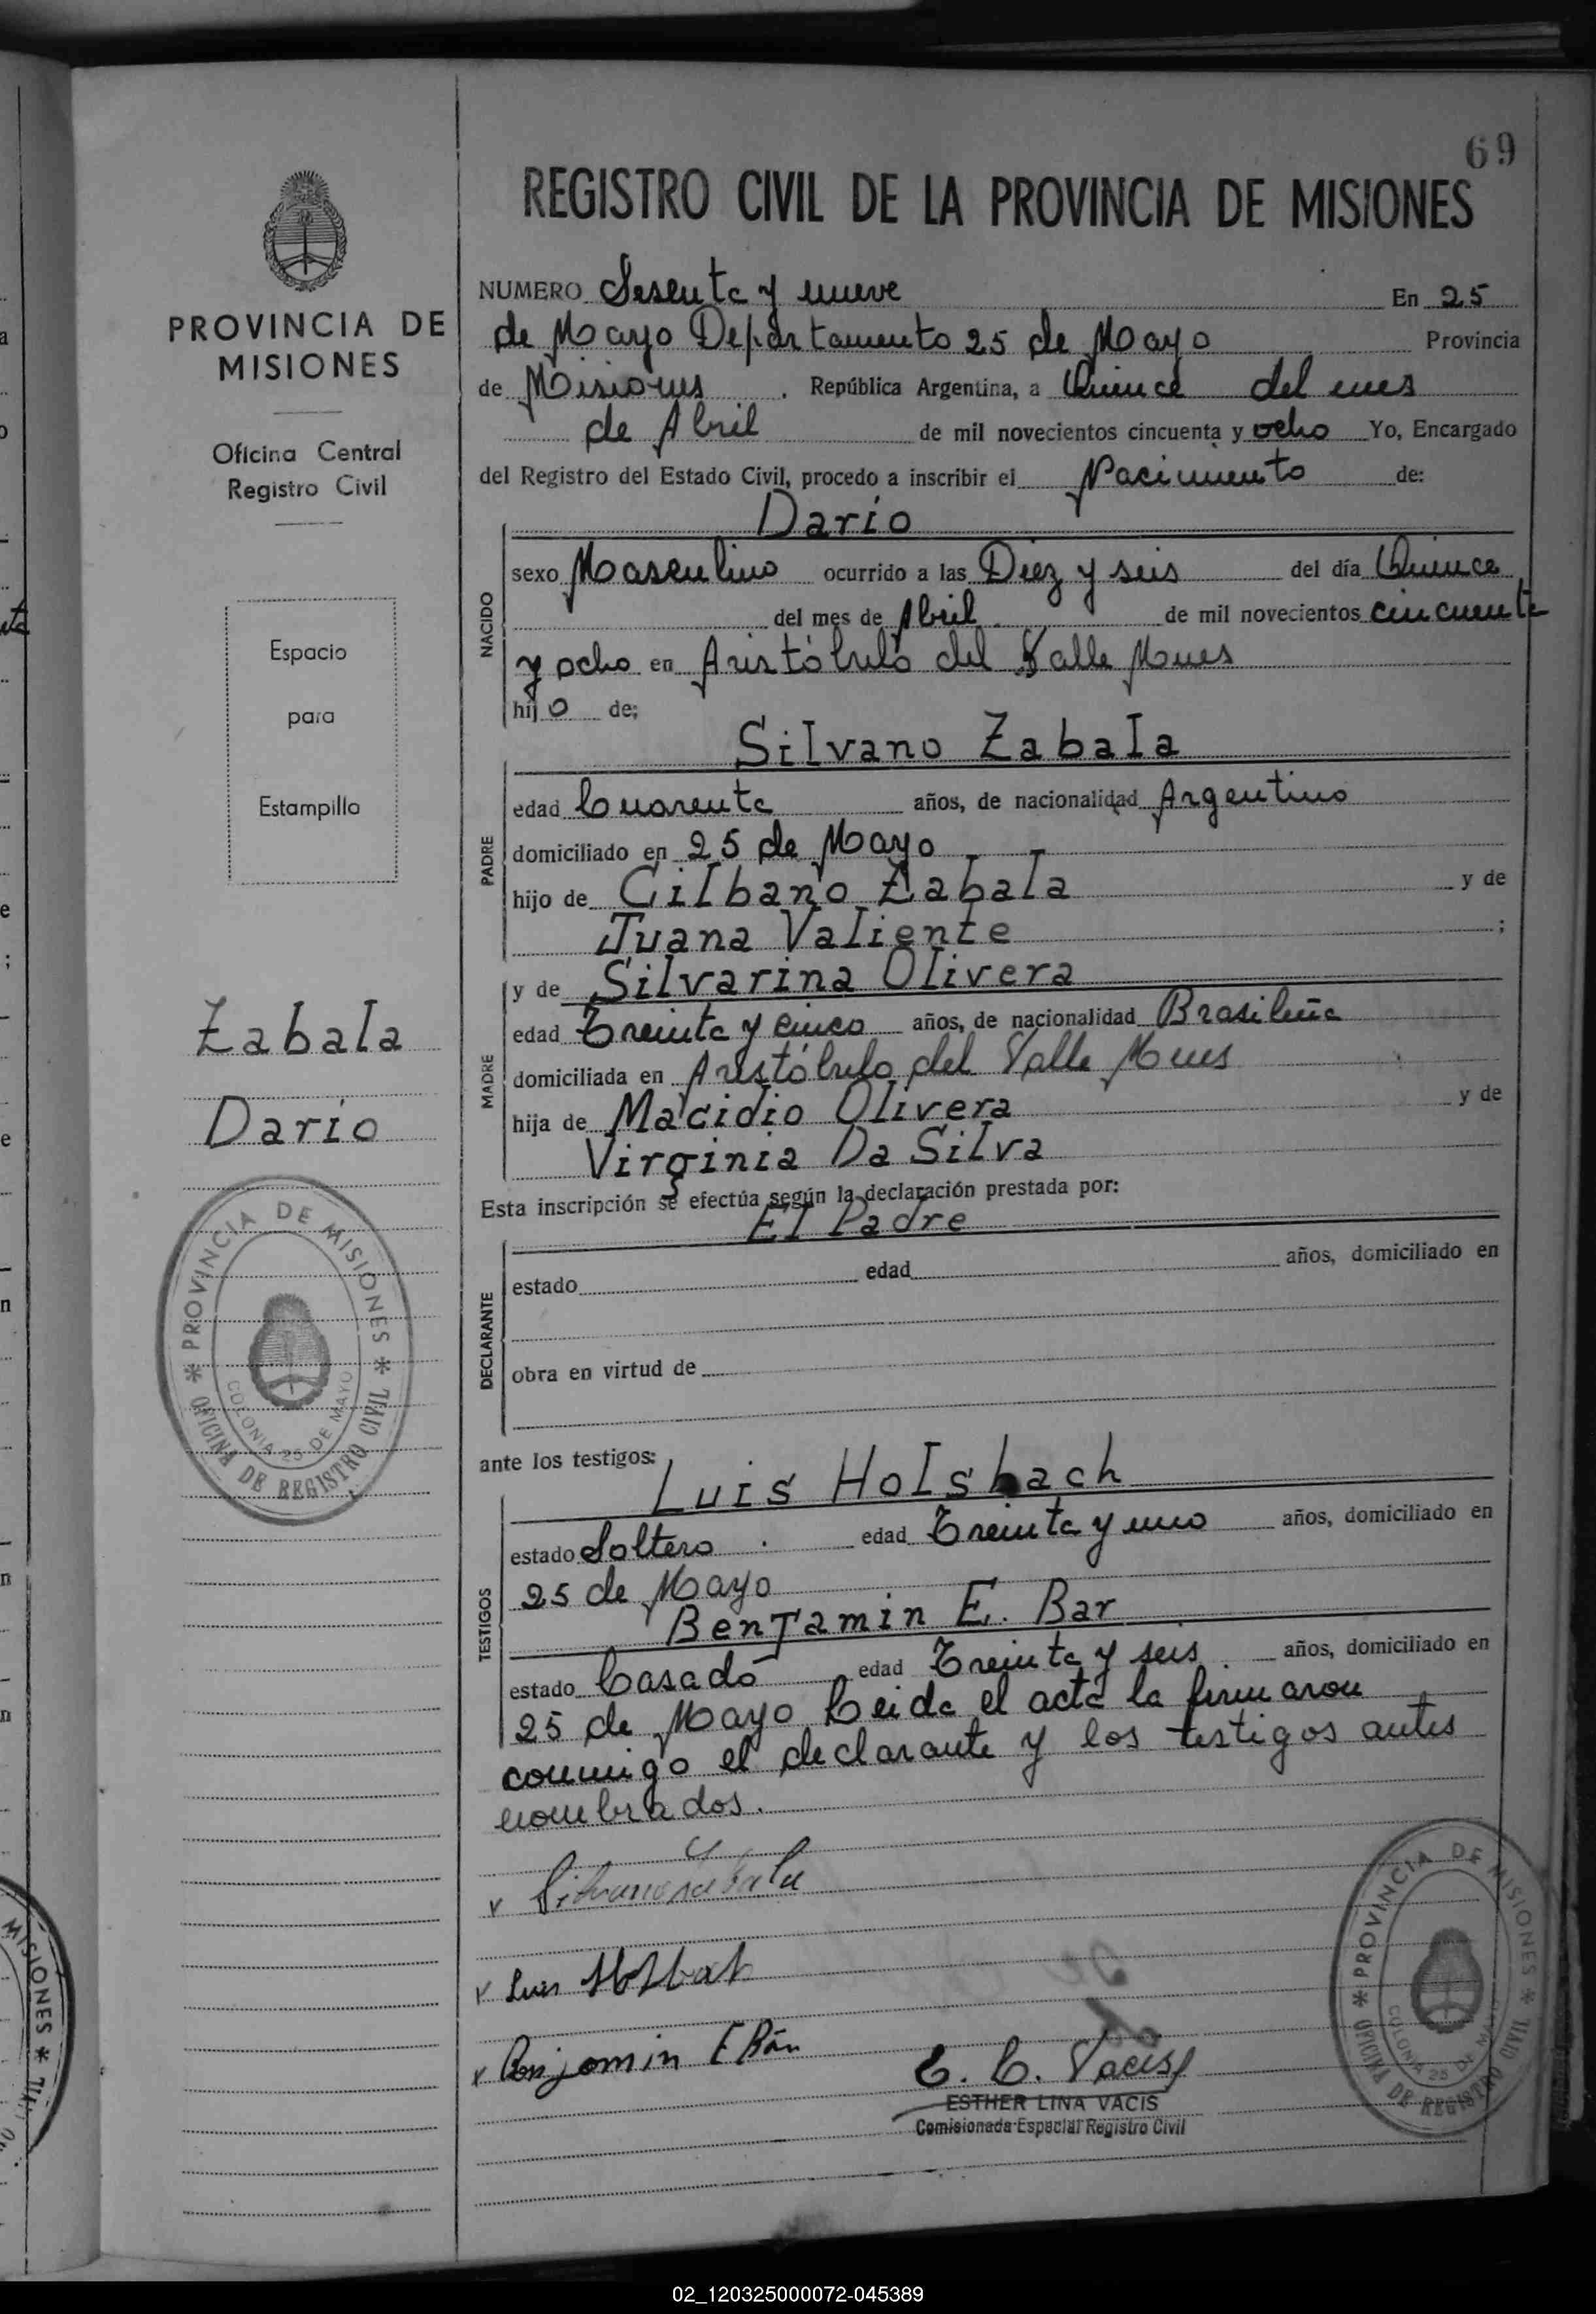 69
REGISTRO CIVIL DE LA PROVINCIA DE MISIONES
PROVINCIA DE
MISIONES
Oficina Central
Registro Civil
Espacio
para
Estampilla
Zabala
Dario
PROVINCIA DE MISIONES
OFICINA DE REGISTRO CIVIL
COLONIA 25 DE MAYO
NUMERO Sesenta y nueve En 25
de Mayo Departamento 25 de Mayo Provincia
de Misiones. República Argentina, a Quince del mes
de Abril de mil novecientos cincuenta y ocho Yo, Encargado
del Registro del Estado Civil, procedo a inscribir el Nacimiento de:
Dario
NACIDO
sexo Masculino ocurrido a las Diez y seis del día Quince
del mes de Abril de mil novecientos cincuenta
y ocho en Aristóbulo del Valle Mnes
hijo de;
Silvano Zabala
PADRE
edad Cuarenta años, de nacionalidad Argentino
domiciliado en 25 de Mayo
hijo de Cilbano Zabala y de
Juana Valiente ;
y de Silvarina Olivera
MADRE
edad Treinta y cinco años, de nacionalidad Brasileña
domiciliada en Aristóbulo del Valle Mnes
hija de Macidio Olivera y de
Virginia Da Silva
Esta inscripción se efectúa según la declaración prestada por:
El Padre
DECLARANTE
estado edad años, domiciliado en
obra en virtud de
ante los testigos:
Luis Holsbach
TESTIGOS
estado Soltero. edad Treinta y uno años, domiciliado en
25 de Mayo
Benjamin E. Bar
estado Casado edad Treinta y seis. años, domiciliado en
25 de Mayo Leida el acta la firmaron
conmigo el declarante y los testigos antes
nombrados.
Silvano Zabala
Luis Holsbach
Benjamin E Bár
E. L. Vacis
ESTHER LINA VACIS
Comisionada Especial Registro Civil
PROVINCIA DE MISIONES
OFICINA DE REGISTRO CIVIL
COLONIA 25 DE MAYO
02_120325000072-045389